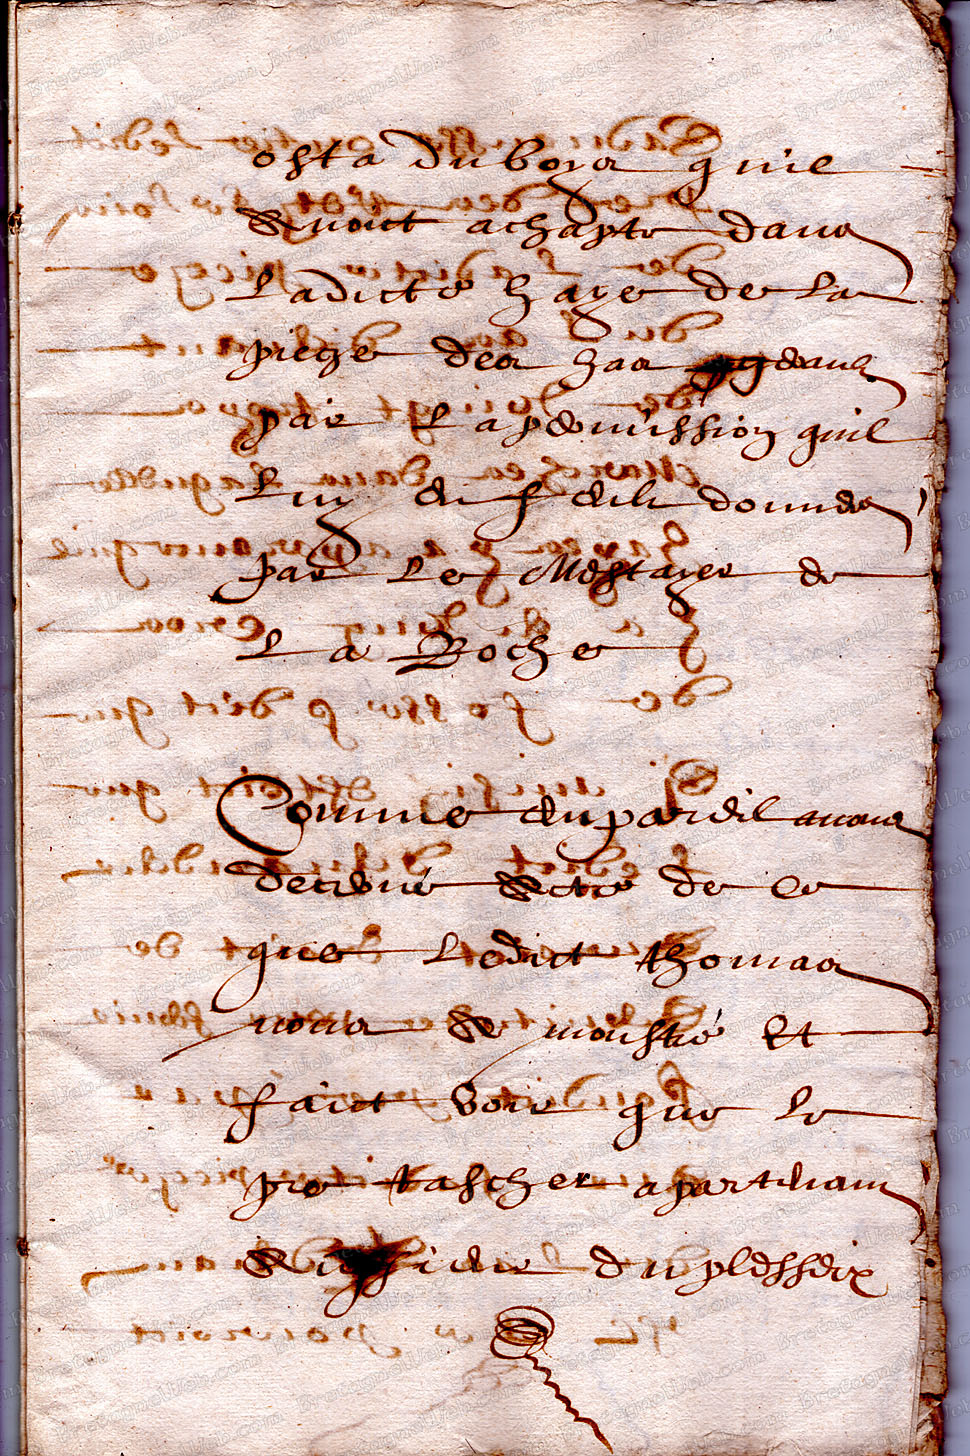 osta du boys quil
avoict achapté dans
Ladicte haye de La
piecze des haa
par La permission quil
Luy en feilt donnée
par Le Mestayer de
La Roche
Comme en pareil avons
decerné acte de ce
que Ledict thomas
nous a monstré Et
faict voir que Le
pré tascher apartenant
au sieur du plesseix